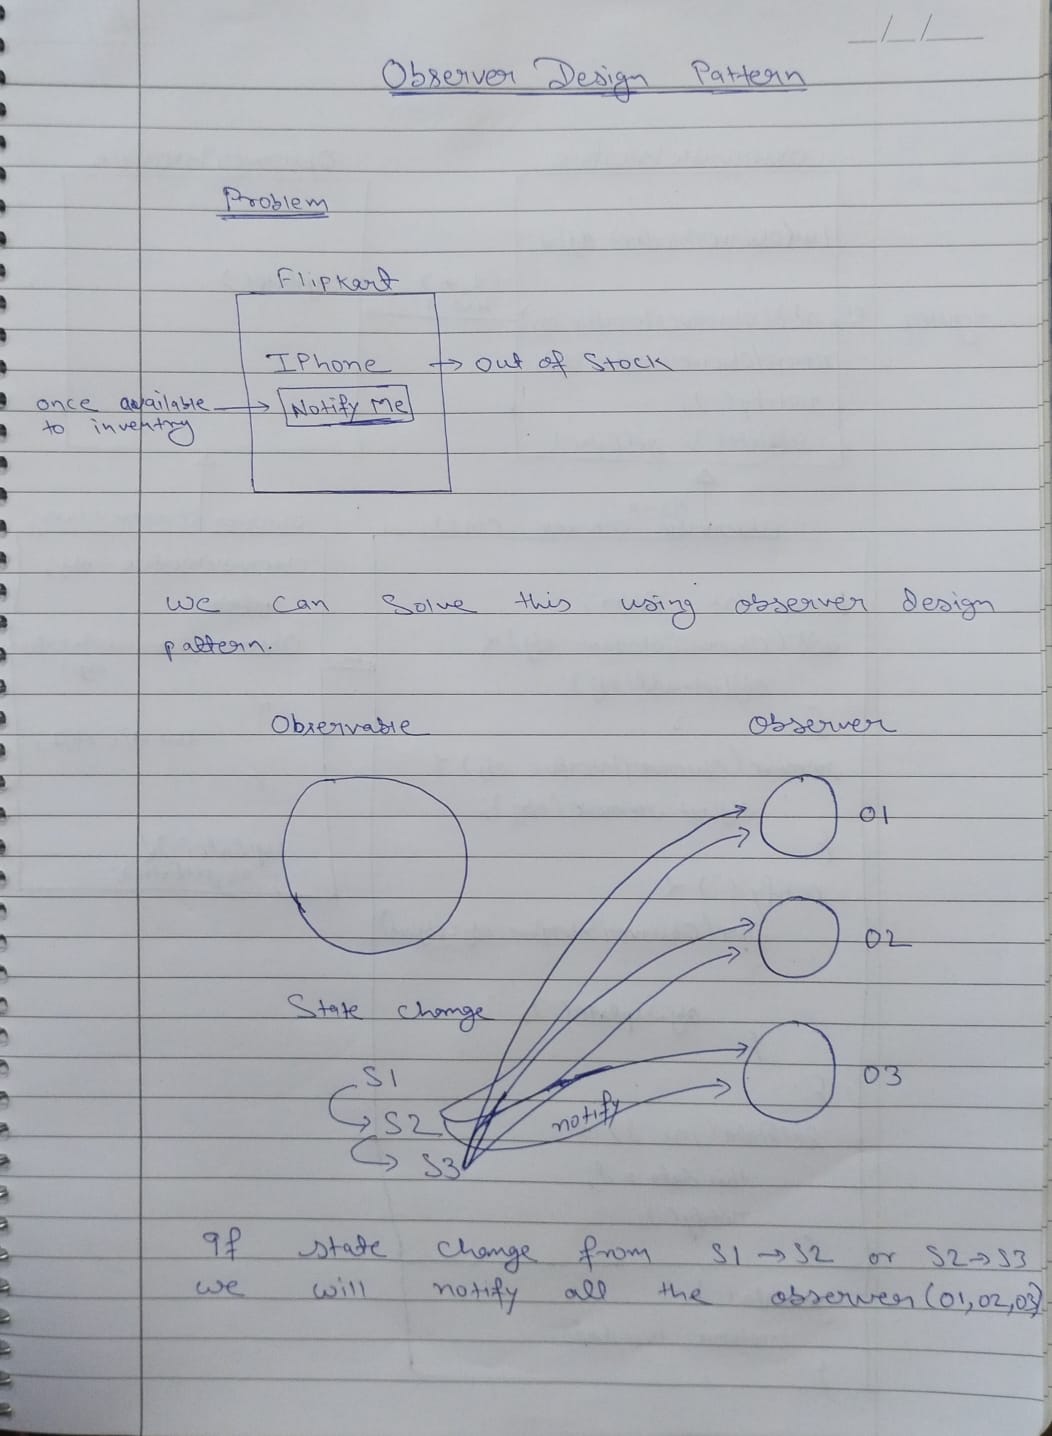 Observer Design Pattern
Problem
Flipkart
IPhone → out of Stock
once available → Notify Me
to inventry
we can Solve this using observer design
pattern.
Observable Observer
O1
O2
State change
S1
O3
S2
notify
S3
If state change from S1 → S2 or S2 → S3
we will notify all the observer (O1, O2, O3)